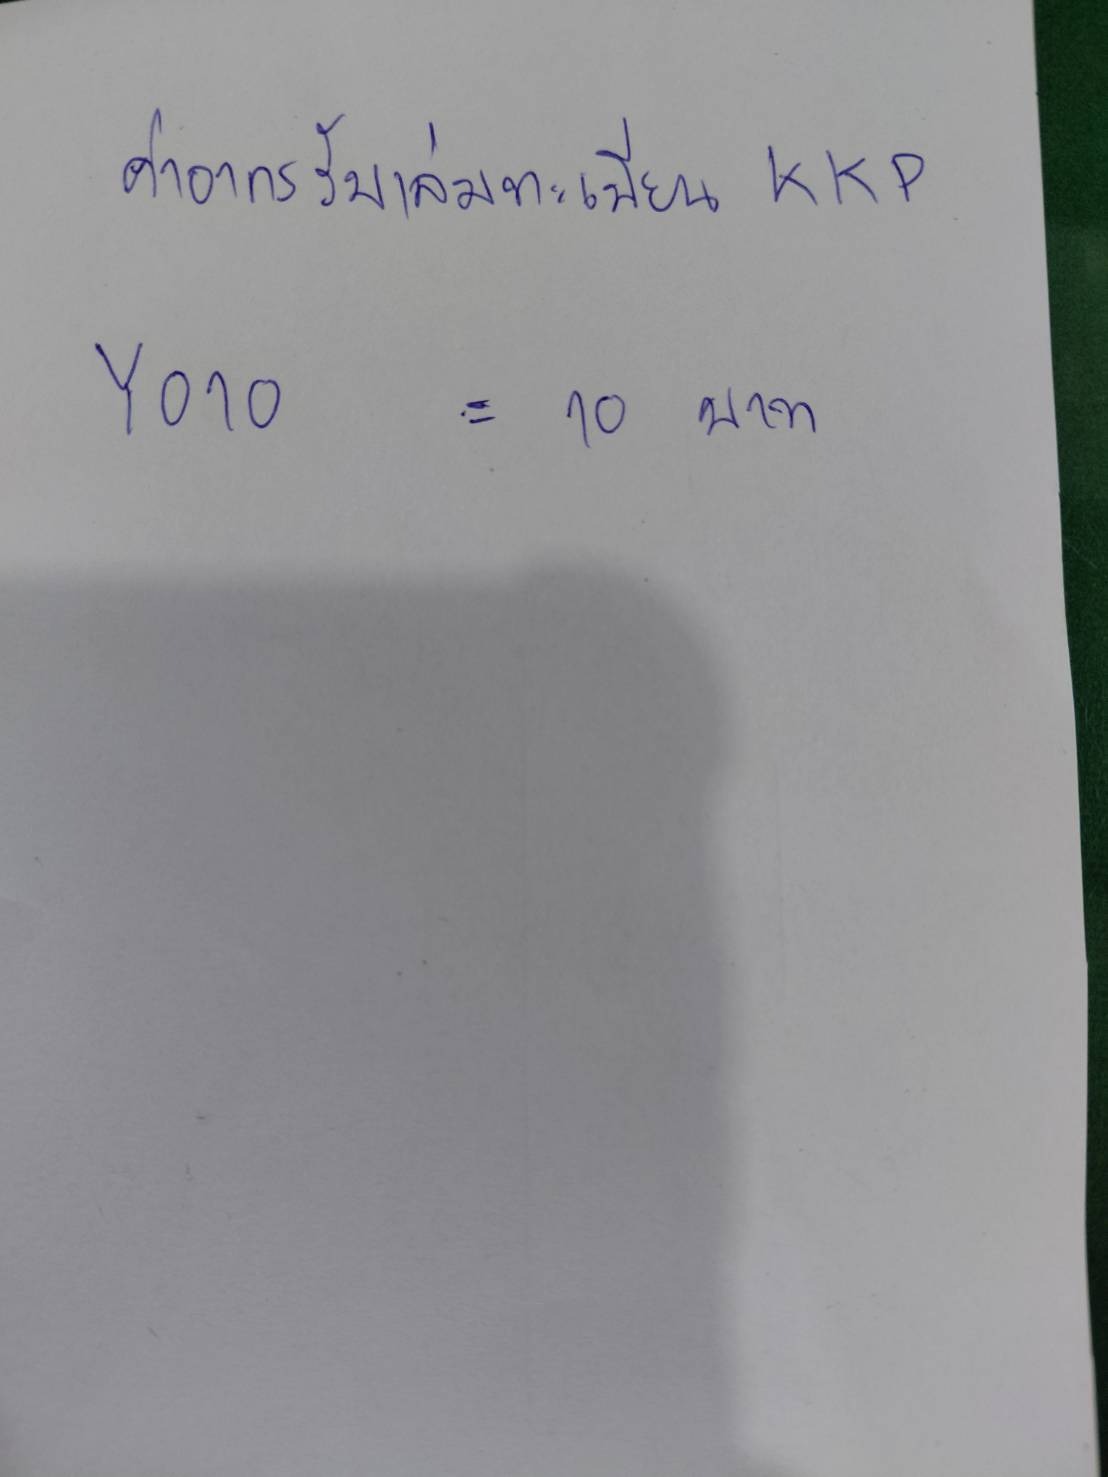 ค่าอากรรับเล่มทะเบียน KKP
Y010 = 10 บาท